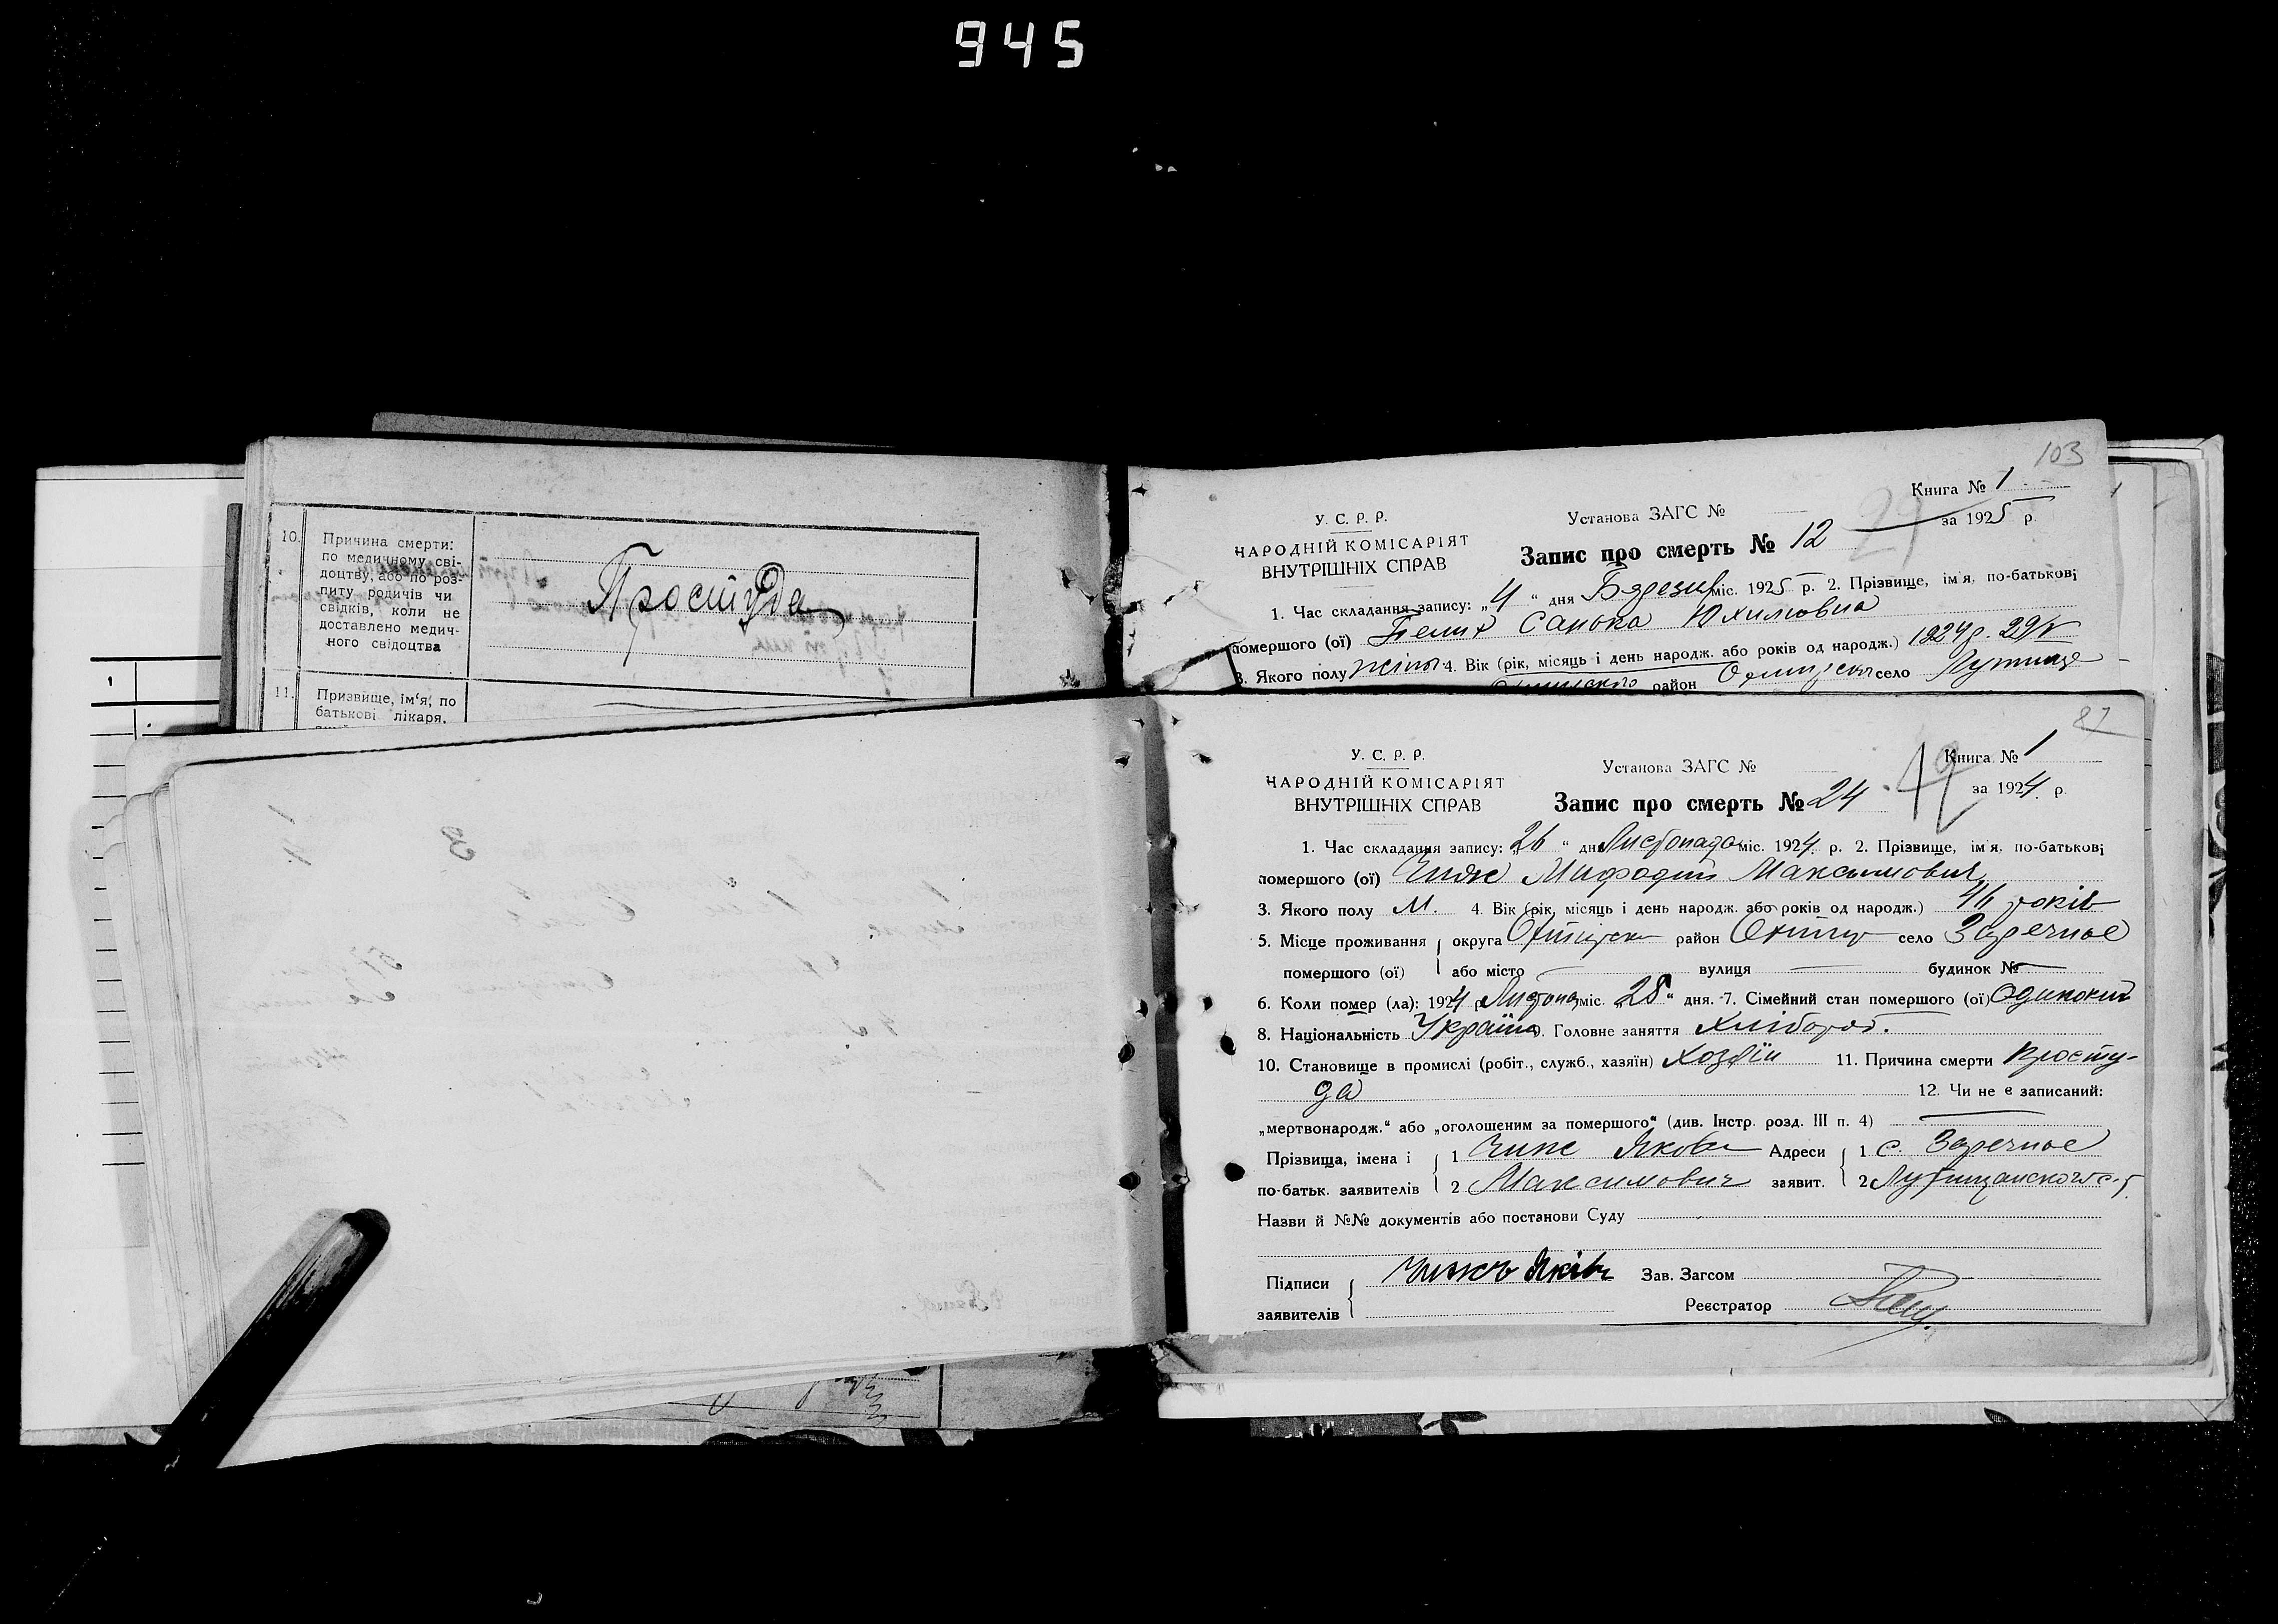 945
10. Причина смерти:
по медичному сві-
доцтву, або по роз-
питу родичів чи
свідків, коли не
доставлено медич-
ного свідоцтва
Простуда
11. Призвище, ім'я, по
батькові лікаря,
103
Книга № 1
У. С. Р. Р.
Установа ЗАГС №
за 1925 р.
НАРОДНІЙ КОМІСАРІЯТ
ВНУТРІШНІХ СПРАВ
Запис про смерть № 12
1. Час складання запису: „4“ дня міс. 1925 р. 2. Прізвище, ім'я, по-батькові
помершого (ої) Санька Юхимовна
3. Якого полу 4. Вік (рік, місяць і день народж. або років од народж.) 1924 р. 29/V
район село
87
У. С. Р. Р.
Установа ЗАГС №
Книга № 1
НАРОДНІЙ КОМІСАРІЯТ
ВНУТРІШНІХ СПРАВ
Запис про смерть № 24
за 1924 р.
1. Час складання запису: „26“ дня Листопада міс. 1924 р. 2. Прізвище, ім'я, по-батькові
помершого (ої) Чиж Мифодий Максимович
3. Якого полу М. 4. Вік (рік, місяць і день народж. або років од народж.) 46 років
5. Місце проживання округа район село Заречное
помершого (ої) або місто вулиця будинок №
6. Коли помер (ла): 1924 р. міс. „25“ дня. 7. Сімейний стан помершого (ої) Одинокий
8. Національність Україн 9. Головне заняття Хлібороб.
10. Становище в промислі (робіт., служб., хазяїн) Хозяїн 11. Причина смерти Просту-
да 12. Чи не є записаний:
„мертвонародж.“ або „оголошеним за помершого“ (див. Інстр. розд. III п. 4)
Прізвища, імена і 1 Чиж Якове Адреси 1 с. Заречное
по-батьк. заявителів 2 Максимович заявит. 2
Назви й №№ документів або постанови Суду
Підписи Чижъ Яків Зав. Загсом
заявителів Реєстратор